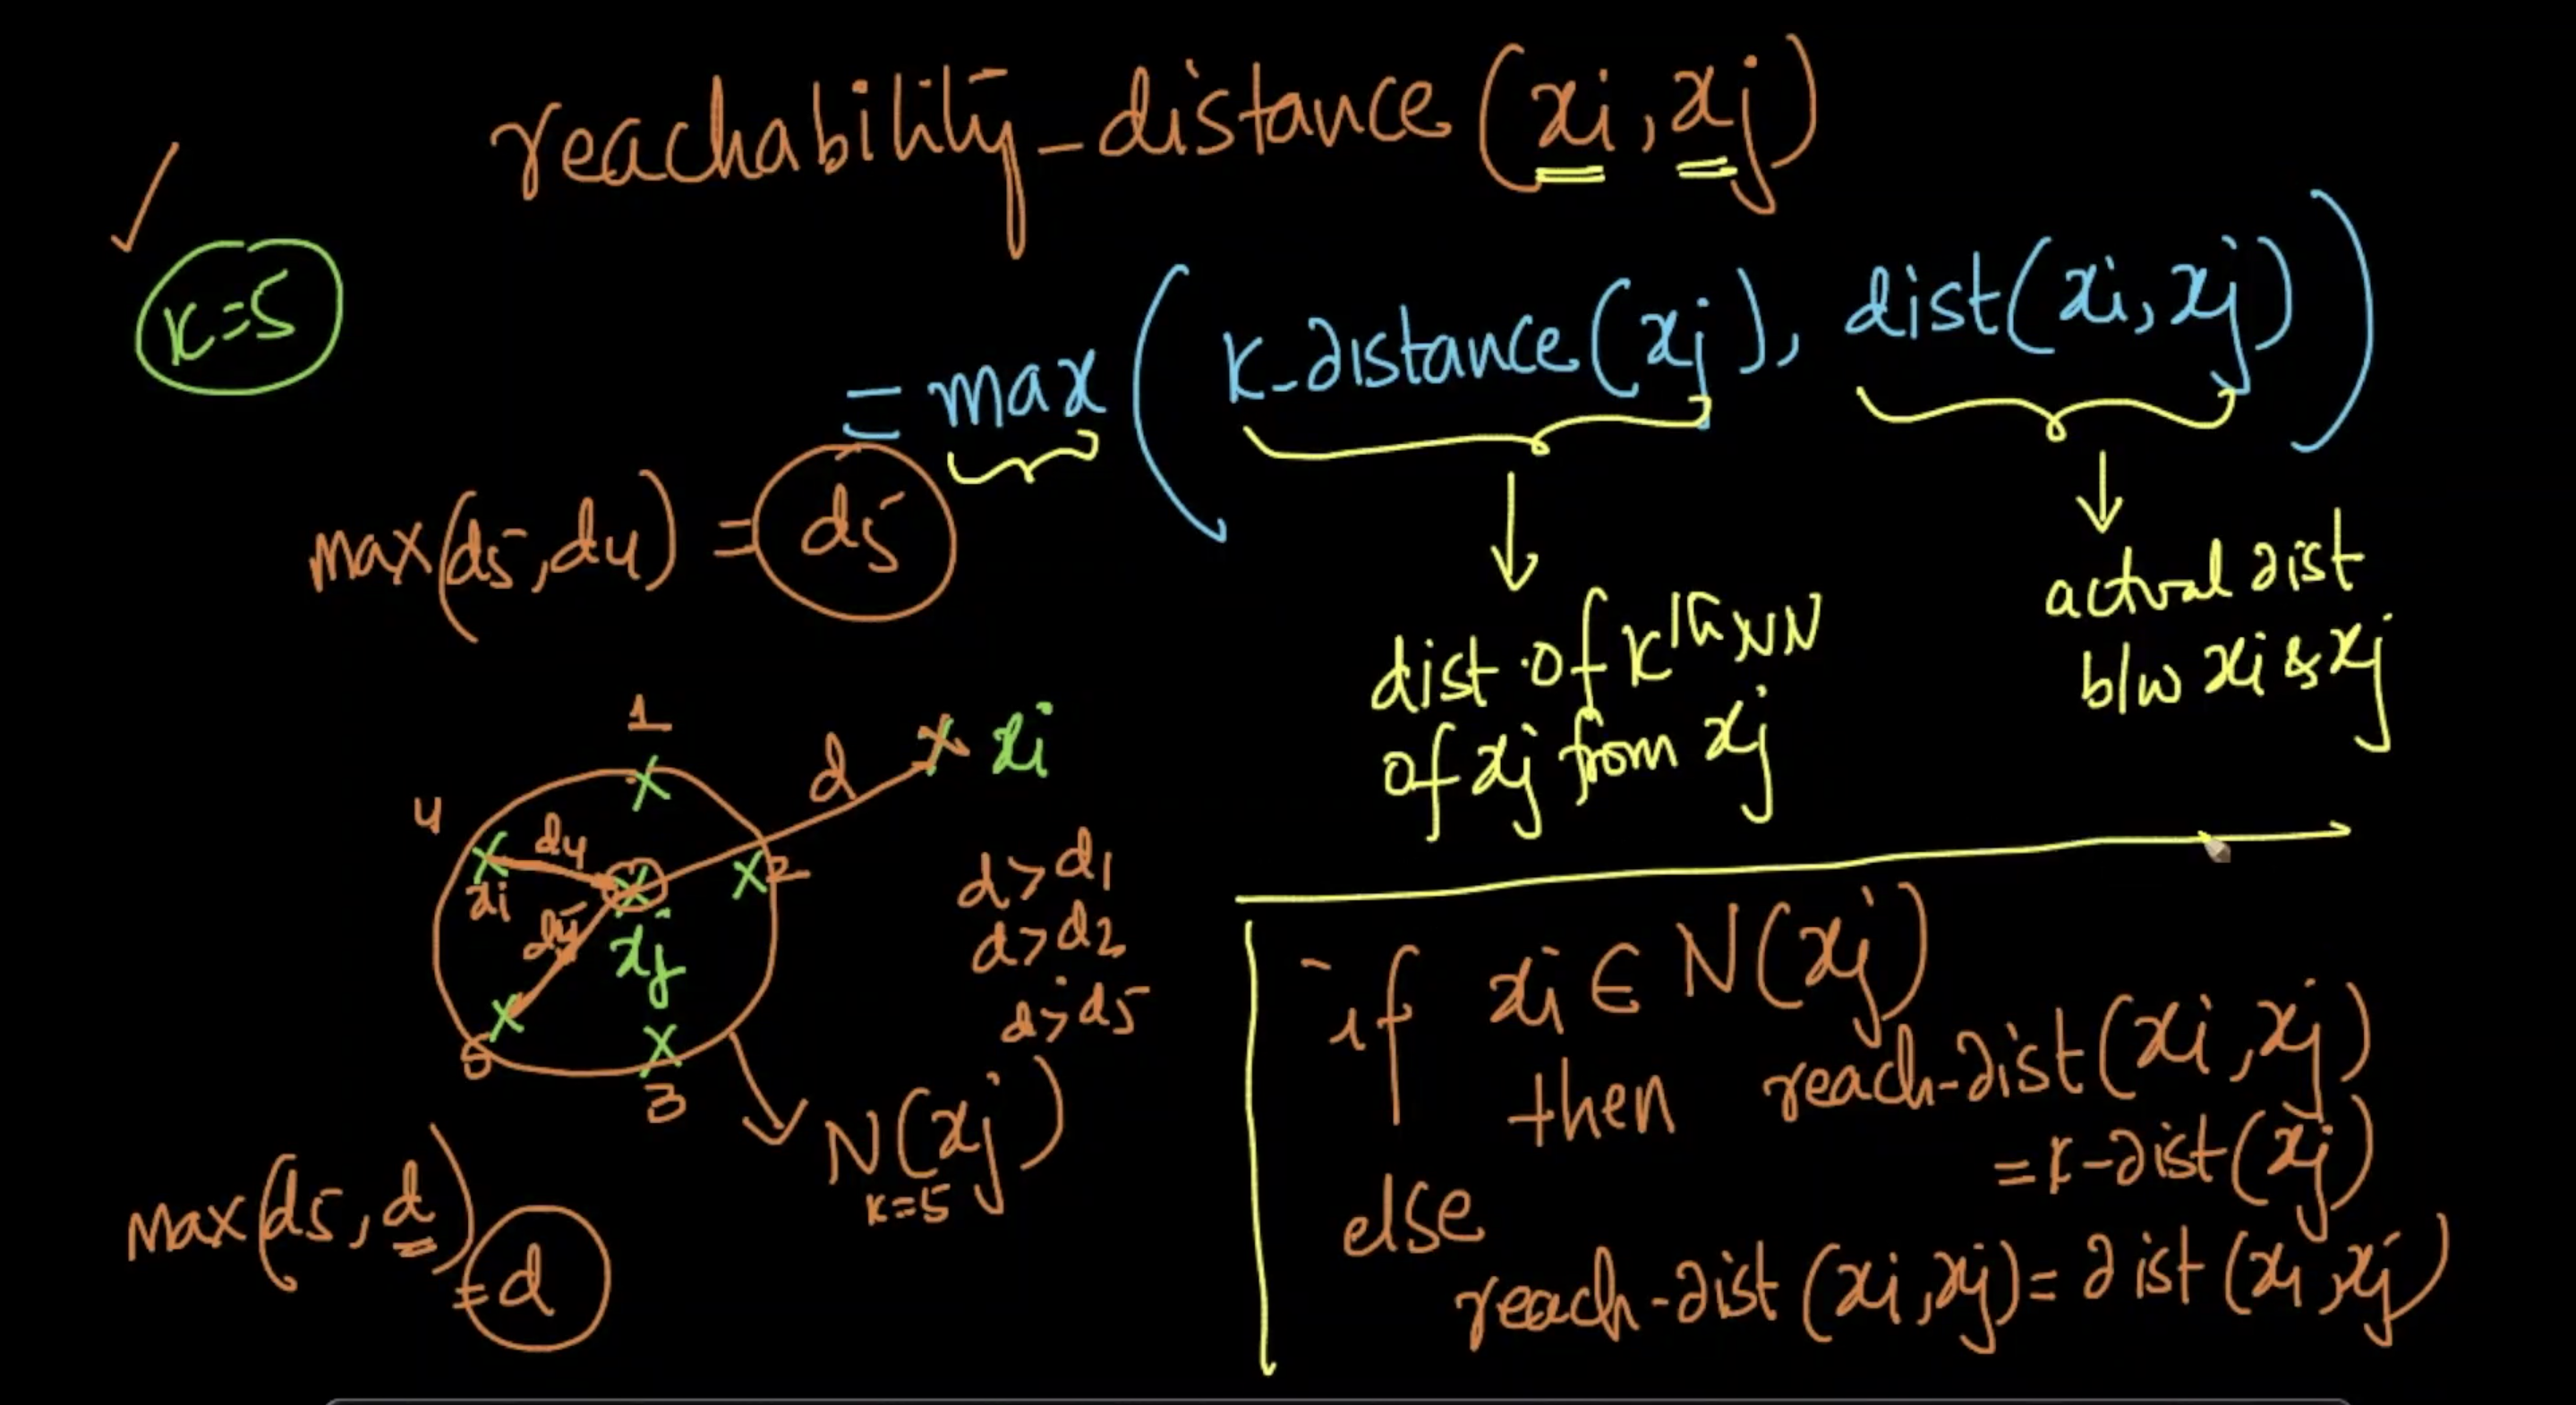 reachability-distance(xi, xj)
k=5
= max(k-distance(xj), dist(xi, xj))
max(d5, d4) = d5
dist of kth NN
of xj from xj
actual dist
b/w xi & xj
1
xi
d
4
d4
2
xi
d5
xj
5
3
d>d1
d>d2
d>d5
N(xj)
k=5
max(d5, d)
= d
if xi ∈ N(xj)
then reach-dist(xi, xj)
= k-dist(xj)
else
reach-dist(xi, xj) = dist(xi, xj)